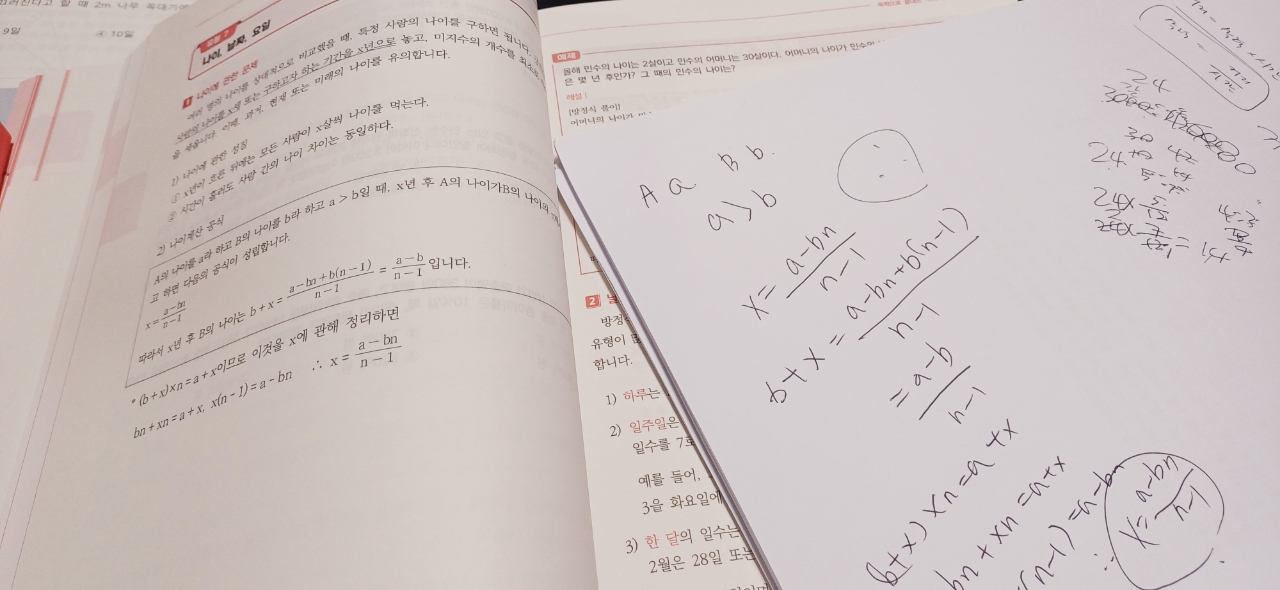 9일
④ 10일
유형 7
나이, 날짜, 요일
1 나이에 관한 문제
여러 명의 나이를 상대적으로 비교했을 때, 특정 사람의 나이를 구하면 됩니다.
사람의 나이를 x명 또는 구하고자 하는 기간을 x년으로 놓고, 미지수의 개수를
을 세웁니다. 이때 과거, 현재 또는 미래의 나이를 유의합니다.
1) 나이에 관한 성질
① x년이 흐른 뒤에는 모든 사람이 x살씩 나이를 먹는다.
② 시간이 흘러도 사람 간의 나이 차이는 동일하다.
2) 나이계산 공식
A의 나이를 a라 하고 B의 나이를 b라 하고 a > b일 때, x년 후 A의 나이가B의 나이의
고 하면 다음의 공식이 성립합니다.
x = (a-bn)/(n-1)
따라서 x년 후 B의 나이는 b + x = (a-bn+b(n-1))/(n-1) = (a-b)/(n-1) 입니다.
* (b+x)×n = a+x이므로 이것을 x에 관해 정리하면
bn + xn = a + x, x(n-1) = a-bn ∴ x = (a-bn)/(n-1)
예제
올해 민수의 나이는 2살이고 민수의 어머니는 30살이다. 어머니의 나이가 민수의
은 몇 년 후인가? 그 때의 민수의 나이는?
해설
[방정식 풀이]
어머니의 나이가
2 날
방정
유형이
합니다.
1) 하루는
2) 일주일은
일수를 7로
예를 들어,
3을 화요일에
3) 한 달의 일수는
2월은 28일 또는
A a B b
a > b
x = (a-bn)/(n-1)
b + x = (a-bn+b(n-1))/(n-1)
= (a-b)/(n-1)
b+x) × n = a + x
bn + xn = a + x
(n-1) = a-bn
∴ x = (a-bn)/(n-1)
24
24
= 14